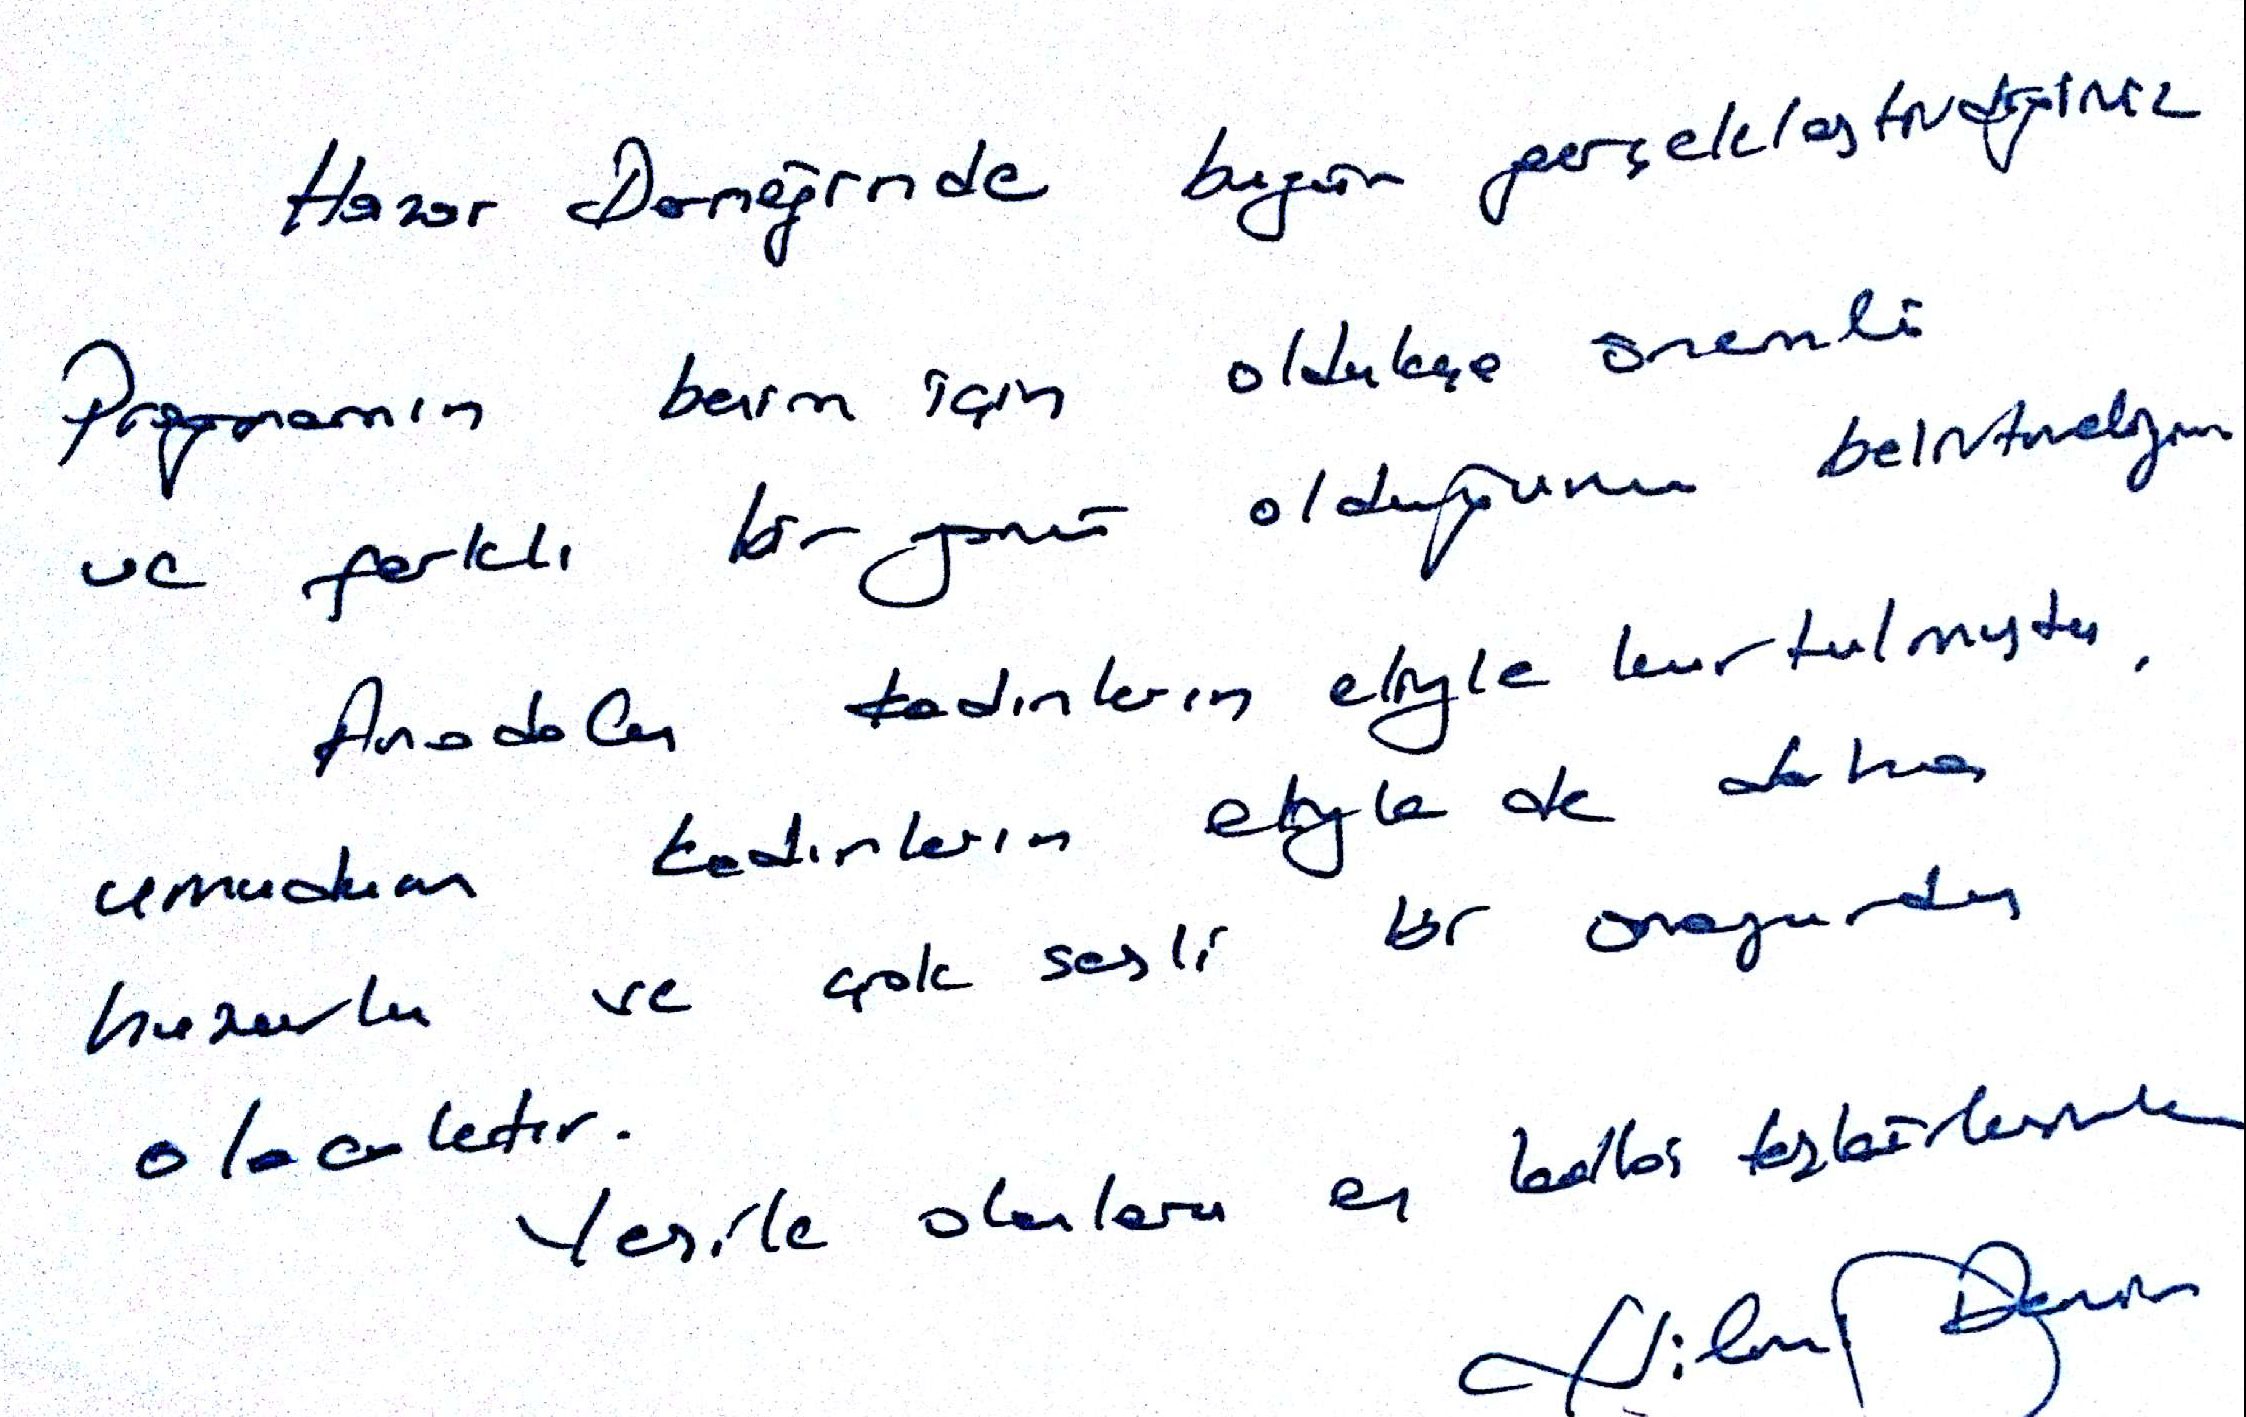 Hazar Derneğinde bugün gerçekleştirdiğiniz
Programın benim için oldukça önemli
ve farklı bir yönü olduğunu belirtmeliyim
Anadolu kadınların eliyle kurtulmuştu,
umudum kadınların eliyle de daha
huzurlu ve çok sesli bir
olacaktır.
Vesile olanlara en kalbi teşekkürlerimle